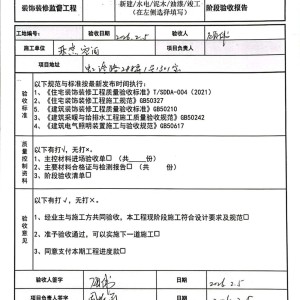 装饰装修监督工程
新建/水电/泥木/油漆/竣工
(在左侧选择填写)
阶段验收报告
工地编号: 验收日期 2026.2.5 验收人
施工单位 项目负责人
项目地址
验收标准
以下规范与标准按最新发布时间执行:
1、《住宅装饰装修工程质量验收标准》T/SDDA-004 (2021)
4、《住宅装饰装修工程施工规范》GB50327
5、《建筑装饰装修工程质量验收标准》GB50210
2、《建筑采暖与给排水工程施工质量验收规范》GB50242
3、《建筑电气照明装置施工与验收规范》GB50617
质量控制资料
以下有打√,无打×。
1、主控材料进场验收单□ (共 份)
2、主要材料合格证与检测报告□ (共 页)
3、阶段验收清单□
验收意见
以下有打√,无打×。
1、经业主与施工方共同验收,本工程现阶段施工符合设计要求及规范□
2、准予验收通过,可以实施下一道施工□
3、同意支付本期工程进度款□
验收人签字 日期 2026.2.5
项目负责人签字 日期 2026.2.5